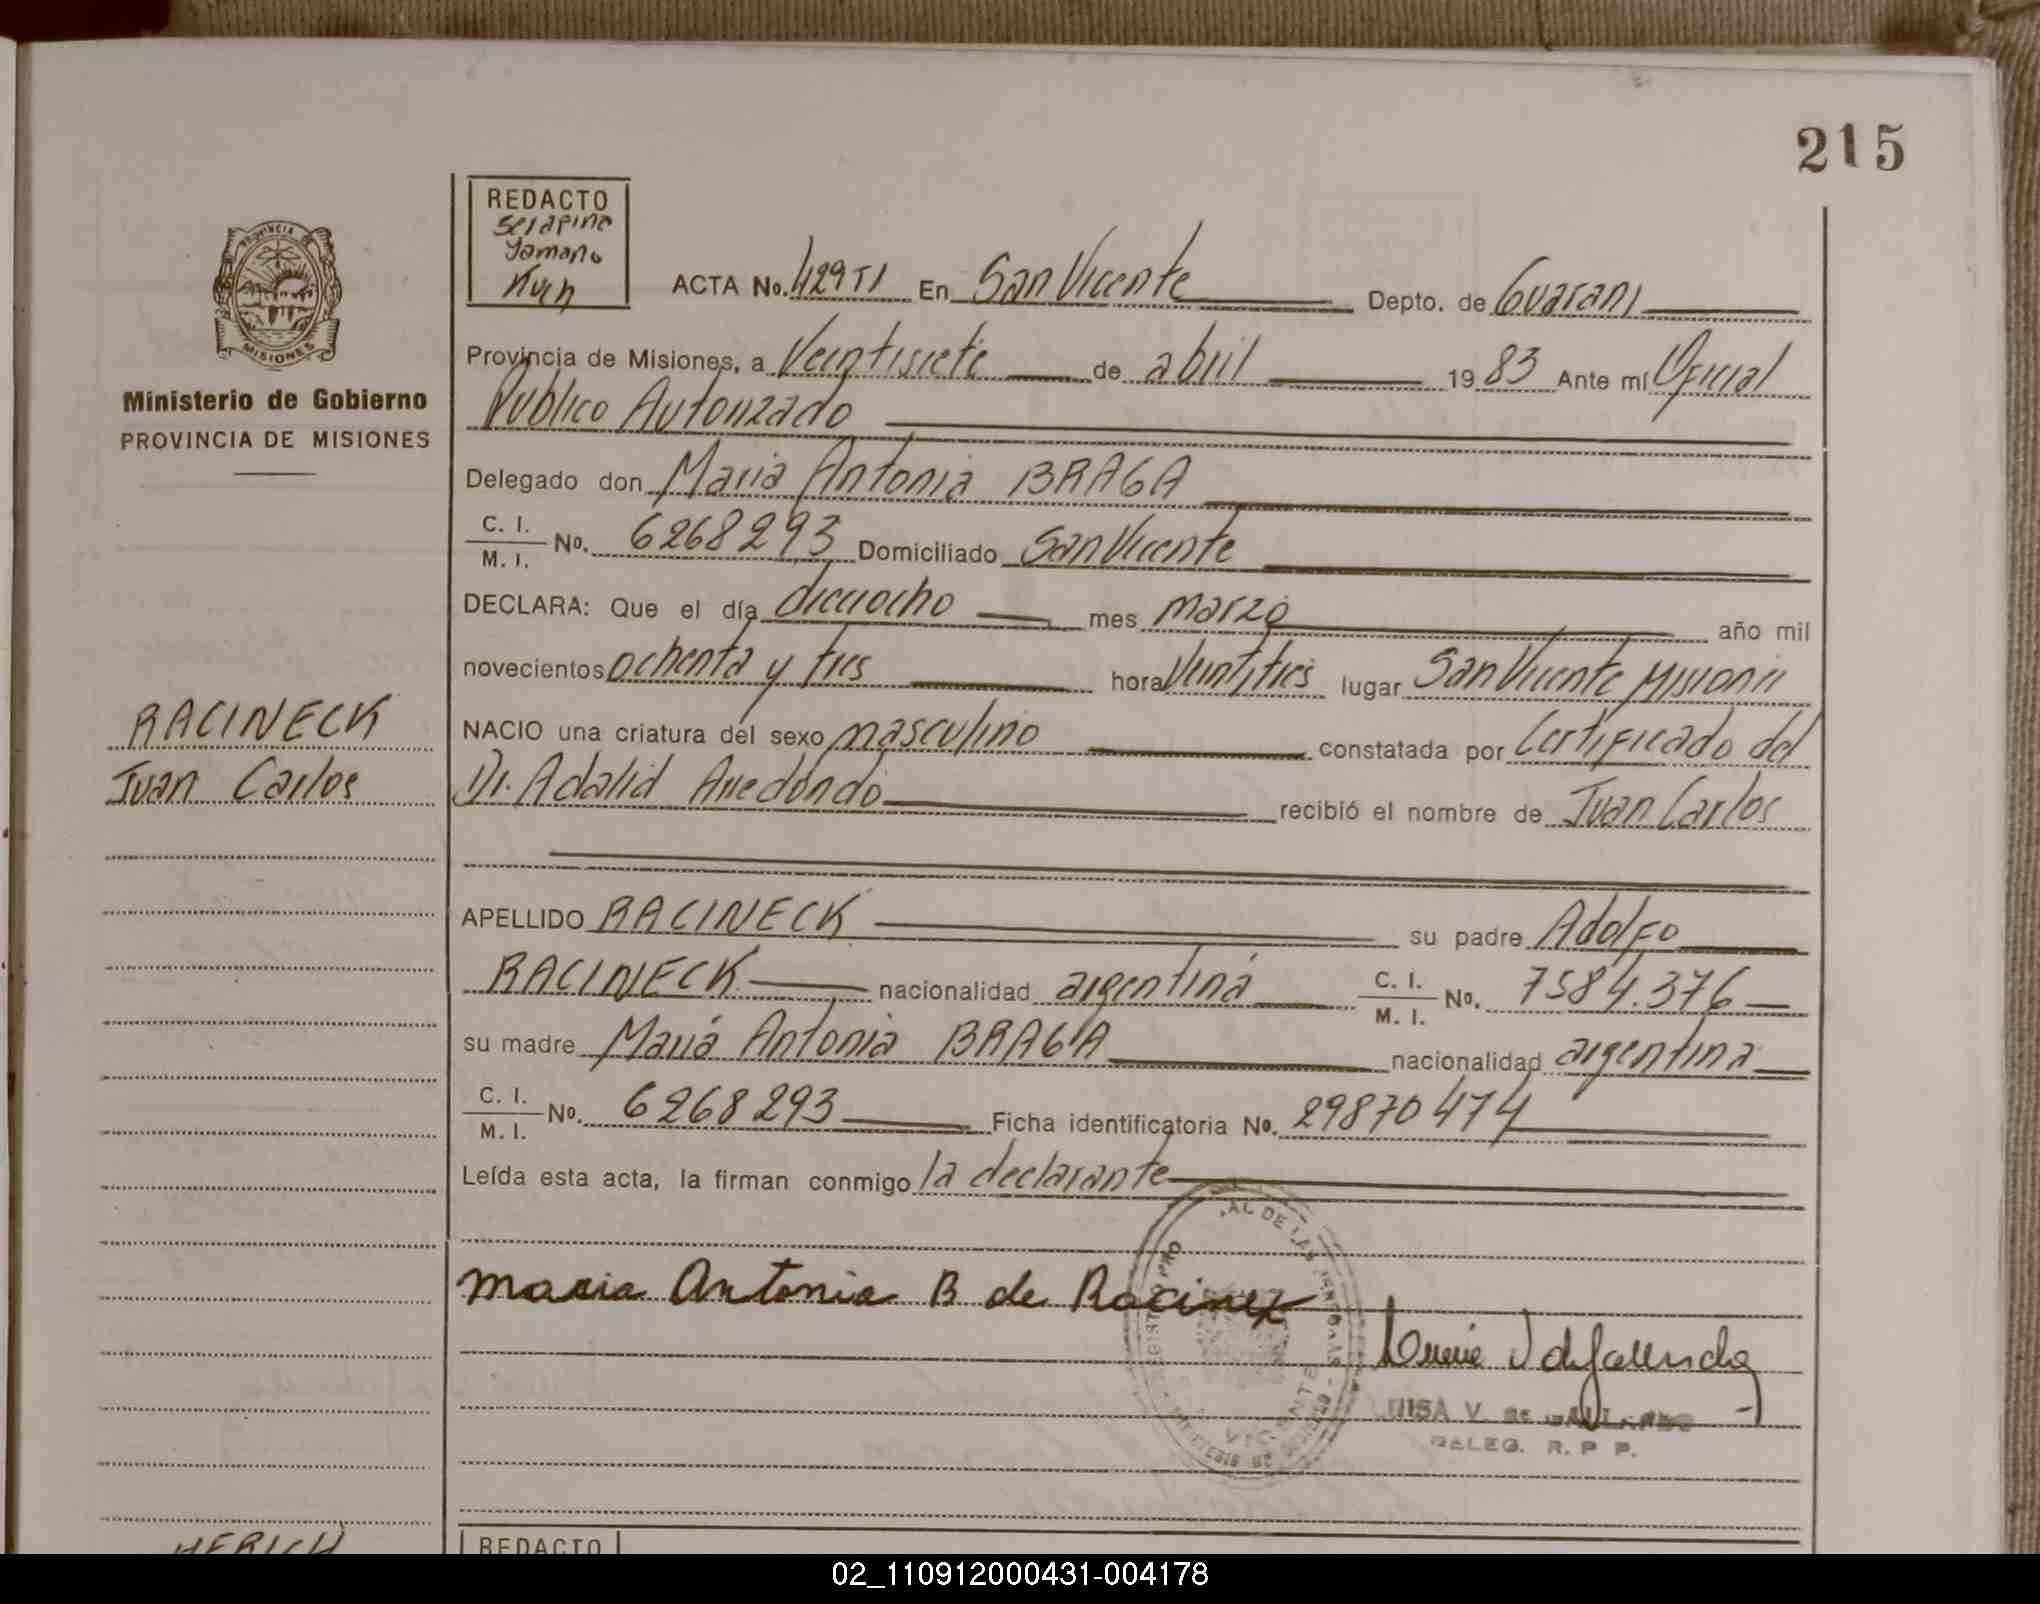 215
REDACTO
Serapina
Yamano
Kuen
ACTA No. 429 T1 En San Vicente Depto. de Guarani
Provincia de Misiones, a Veintisiete de abril 19 83 Ante mí Oficial
Publico Autorizado
PROVINCIA DE
MISIONES
Ministerio de Gobierno
PROVINCIA DE MISIONES
Delegado don Maria Antonia BRAGA
C. I.
M. I. No. 6268293 Domiciliado San Vicente
DECLARA: Que el día dieciocho mes marzo año mil
novecientos ochenta y tres hora Veintitres lugar San Vicente Misiones
NACIO una criatura del sexo masculino constatada por Certificado del
Dr. Adalid Arredondo recibió el nombre de Juan Carlos
RACINECK
Juan Carlos
APELLIDO RACINECK su padre Adolfo
RACINECK nacionalidad argentina C. I.
M. I. No. 7584.376
su madre Maria Antonia BRAGA nacionalidad argentina
C. I.
M. I. No. 6268293 Ficha identificatoria No. 29870474
Leída esta acta, la firman conmigo la declarante
maria Antonia B de Racinek
LUISA V. de GALLARDO
DELEG. R. P P.
HERICH
REDACTO
02_110912000431-004178